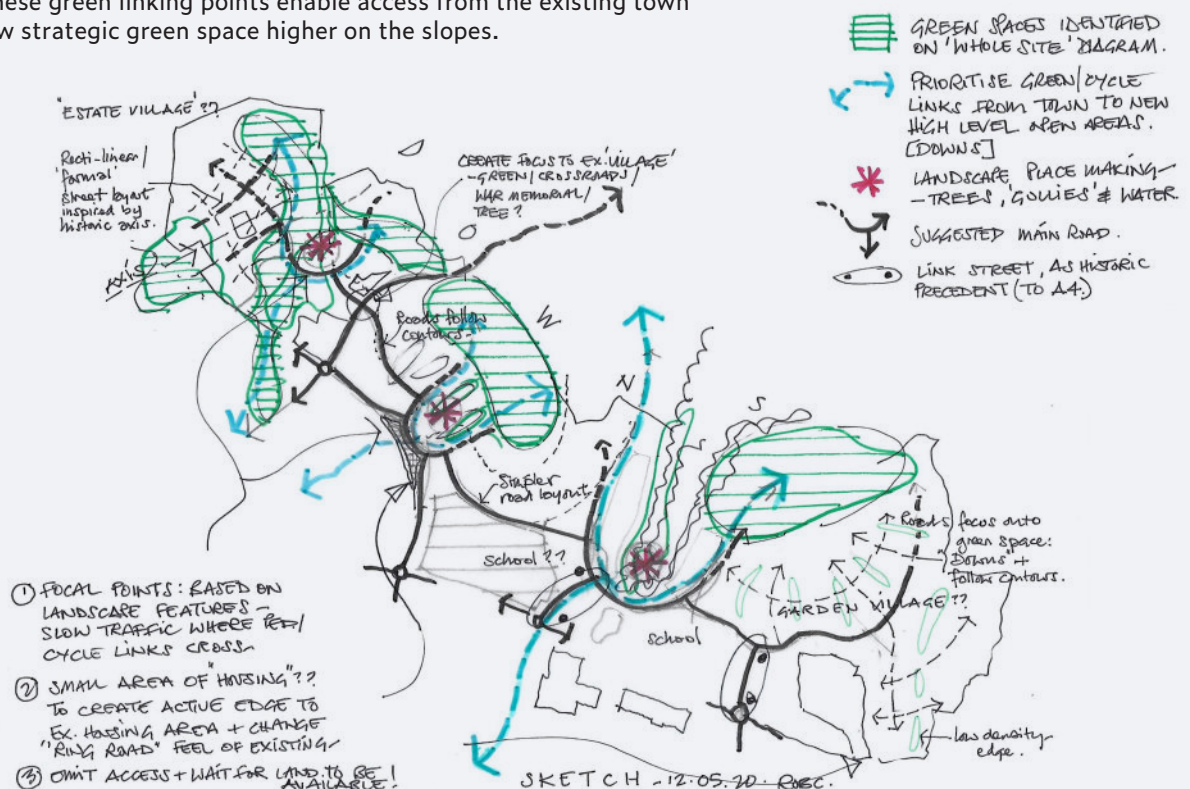 hese green linking points enable access from the existing town
w strategic green space higher on the slopes.
GREEN SPACES IDENTIFIED
ON 'WHOLE SITE' DIAGRAM.
PRIORITISE GREEN/CYCLE
LINKS FROM TOWN TO NEW
HIGH LEVEL OPEN AREAS.
[DOWNS]
LANDSCAPE PLACE MAKING-
- TREES, 'GULLIES' & WATER
SUGGESTED MAIN ROAD.
LINK STREET, AS HISTORIC
PRECEDENT (TO A4.)
'ESTATE VILLAGE'??
Recti-linear/
'formal'
street layout
inspired by
historic axis.
AXIS
CREATE FOCUS TO EX. 'VILLAGE'
- GREEN/CROSSROADS/
WAR MEMORIAL/
TREE?
Roads follow
contours-
W
N
S
Simpler
road layout
School??
School
Roads focus onto
green space:
"Downs" +
follow contours.
GARDEN VILLAGE??
low density
edge.
① FOCAL POINTS: BASED ON
LANDSCAPE FEATURES -
SLOW TRAFFIC WHERE PED/
CYCLE LINKS CROSS-
② SMALL AREA OF "HOUSING"??
TO CREATE ACTIVE EDGE TO
EX. HOUSING AREA + CHANGE
"RING ROAD" FEEL OF EXISTING-
③ OMIT ACCESS + WAIT FOR LAND TO BE
AVAILABLE!
SKETCH - 12.05.20. ROBC.